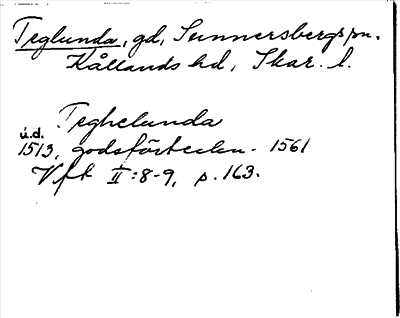 Teglunda, gd, Sunnersbergs sn.
Kållands hd, Skar. l.
Teghelunda
u.d.
1513, godsförteckn. 1561
Vfk II:8-9, p. 163.